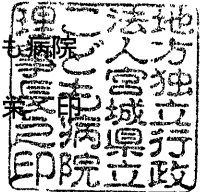 地方独立行政
法人宮城県立
こども病院
理事長之印
も病院
印